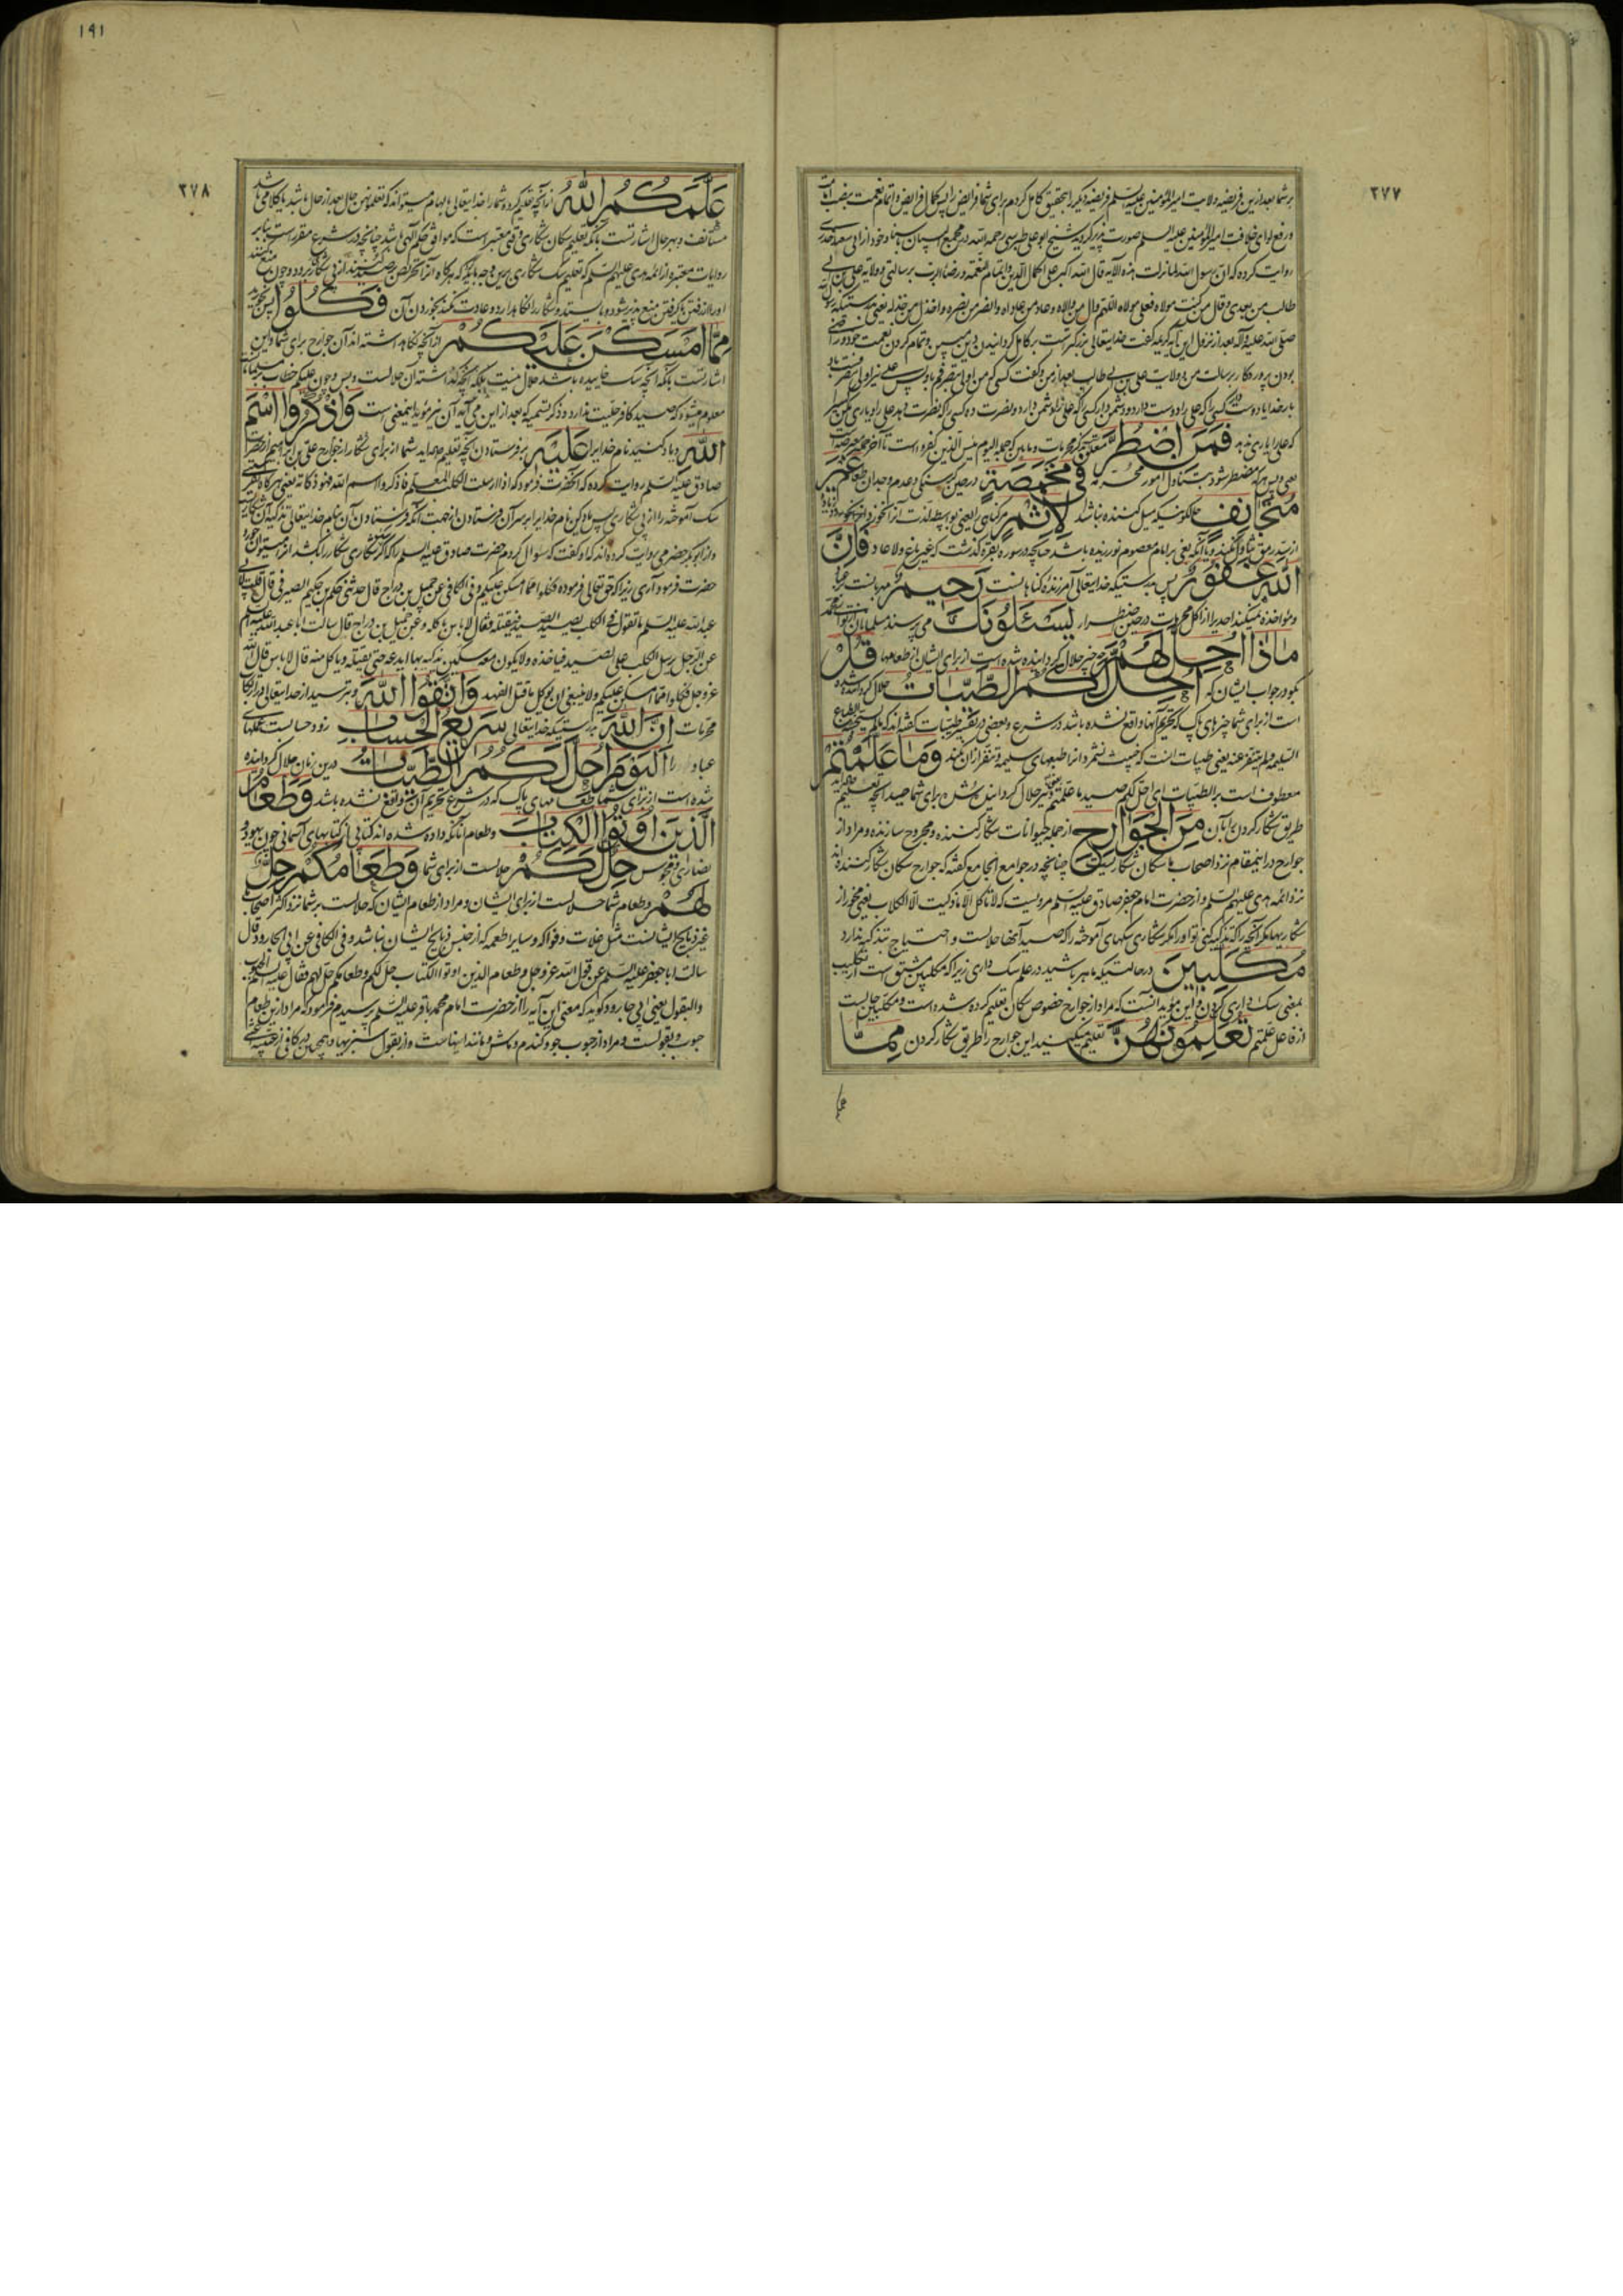 ۲۷۷
بر شما بعد از این فریضه ولایت امیر المؤمنین علیه السلم فریضه دیگر را بتحقیق کامل کردم برای شما فرایض را پس اکمال فرایض و اتمام نعمت بنصب
و رفع لوای خلافت امیر المؤمنین علیه السلم صورت پذیر گردید شیخ ابو علی طبرسی رحمه الله در مجمع البیان باسناد خود از ابی سعید خدری
روایت کرده که ان رسول الله لما نزلت هذه الآیه قال الله اکبر علی اکمال الدین و اتمام النعمه و رضا الرب برسالتی و ولایة علی بن ابی
طالب من بعدی و قال من کنت مولاه فعلی مولاه اللهم وال من والاه و عاد من عاداه و انصر من نصره و اخذل من خذله یعنی بدرستیکه رسول
صلی الله علیه و آله بعد از نزول این آیه کریمه گفت خدایتعالی بزرگتر است بر کامل گردانیدن دین و تمام کردن نعمت خود و راضی
بودن پروردگار برسالت من و ولایت علی بن ابی طالب بعد از من و گفت کسی که من اولی بتصرفم باو پس علی نیز اولی بتصرفست باو
بار خدایا دوست دار کسی را که علی را دوست دارد و دشمن دار کسی را که علی را دشمن دارد و نصرت ده کسی را که نصرت دهد علی را و یاری مکن
که علی را یاری ندهد فَمَنِ اضْطُرَّ متعلق بذکر محرمات و ما بین که جمله الیوم یئس الذین کفروا است تا آخر
یعنی پس هر که مضطر شود بتناول امور محرمه فِي مَخْمَصَةٍ در حین گرسنگی و عدم وجدان طعام غَيْرَ
مُتَجَانِفٍ حالکونیکه میل کننده نباشد لِإِثْمٍ مر گناهی را یعنی بواسطه لذت آنرا نخورد
از سد رمق تجاوز نکند و یا آنکه یعنی بر امام معصوم نورزیده باشد چنانچه در سوره بقره گذشت که غیر باغ و لا عاد فَإِنَّ
اللَّهَ غَفُورٌ پس بدرستیکه خدایتعالی آمرزنده گناهانست رَحِيمٌ مهربانست
و مؤاخذه نمیکند احدیرا از اکل محرمات در حین اضطرار يَسْئَلُونَكَ می پرسند مسلمانان از تو ای محمد
مَاذَا أُحِلَّ لَهُمْ چه چیز حلال گردانیده شده است از برای ایشان از طعامها قُلْ
بگو در جواب ایشان که أُحِلَّ لَكُمُ الطَّيِّبَاتُ حلال گردانیده شده
است از برای شما چیزهای پاک که تحریم آنها واقع نشده باشد در شرع و بعضی در تفسیر طیبات گفته اند که ما لم یستخبثه الطباع
السلیمه و لم یتنفر عنه یعنی طیبات آنست که خبیث نشمرد آنرا طبعهای سلیمه و تنفر از آن نکند وَمَا عَلَّمْتُمْ
معطوف است بر الطیبات ای احل لکم صید ما علمتم یعنی و نیز حلال گردانیده شده برای شما صید آنچه تعلیم
طریق شکار کردن بآن مِنَ الْجَوَارِحِ از جمله حیوانات شکار کننده و مجروح سازنده و مراد از
جوارح در اینمقام نزد اصحاب ما سگان شکاریست چنانچه در جوامع الجامع گفته که جوارح سگان شکار کننده اند
نزد ائمه هدی علیهم السلم و از حضرت امام جعفر صادق علیه السلم مرویست که لا تاکل الا ما ذکیت الا الکلاب یعنی مخور از
شکاریها مگر آنچه را که تذکیه کنی تو او را مگر شکاری سگهای آموخته را که صید آنها حلالست و احتیاج بتذکیه ندارد
مُكَلِّبِينَ در حالتیکه ماهر باشید در علم سگ داری زیرا که مکلبین مشتق است از تکلیب
بمعنی سگ داری کردن و این مؤید آنست که مراد از جوارح خصوص سگان تعلیم کرده شده است و مکلبین حالست
از فاعل علمتم تُعَلِّمُونَهُنَّ تعلیم میکنید این جوارح را طریق شکار کردن مِمَّا
۱۹۱
۲۷۸
عَلَّمَكُمُ اللَّهُ از آنچه تعلیم کرده شما را خدایتعالی بالهام میتواند که تعلمونهن حال بعد از حال باشد یا کلامی باشد
مستأنف و بهر حال اشارتست بآنکه تعلیم سگان شکاری وقتی معتبر است که موافق حکم آلهی باشد چنانچه در شرع مقرر است بنابر
روایات معتبره از ائمه هدی علیهم السلم که تعلیم سگ شکاری باین وجه باید که هرگاه آنرا تحریص بر صید کنند از پی شکار برود و چون منع کنند
او را از رفتن و گرفتن منع پذیر شود و باستد و شکار را نگاهدارد و عادت نکند بخوردن آن فَكُلُوا پس بخورید
مِمَّا أَمْسَكْنَ عَلَيْكُمْ از آنچه نگاهداشته اند آن جوارح برای شما و این
اشارتست بآنکه آنچه سگ خاییده باشد حلال نیست بلکه آنچه نگهداشته آن حلالست و بس و چون علیکم خطاب
معلوم میشود که صید کافر حلیت ندارد و ذکر تسمیه که بعد از این می آید آن نیز مؤید اینمعنی است وَاذْكُرُوا اسْمَ
اللَّهِ و یاد کنید نام خدایرا عَلَيْهِ بر فرستادن آنچه تعلیم داده اید شما از برای شکار از جوارح علی بن ابراهیم از حضرت
صادق علیه السلم روایت کرده که آنحضرت فرمود که اذا ارسلت الکلب المعلم فاذکروا اسم الله فهو ذکاته یعنی هرگاه بفرستی
سگ آموخته را از پی شکاری پس یاد کن نام خدایرا بر سر آن فرستادن از جهت آنکه فرستادن آن بنام خدایتعالی تذکیه آن شکاریست
و از ابو بکر حضرمی روایت کرده اند که او گفت که سؤال کردم حضرت صادق علیه السلم را که اگر سگ شکاری شکار را بکشد آنرا میتوان خورد
حضرت فرمود آری زیرا که حق تعالی فرموده فکلوا مما امسکن علیکم و فی الکافی عن جمیل بن دراج قال حدثنی حکم بن حکیم الصیرفی قال قلت لابی
عبد الله علیه السلم ما تقول فی الکلب یصید الصید فیقتله فقال لا باس باکله و عن جمیل بن دراج قال سالت ابا عبد الله علیه السلم
عن الرجل یرسل الکلب علی الصید فیاخذه و لا یکون معه سکین یذکیه بها ایدعه حتی یقتله و یاکل منه قال لا باس قال الله
عز و جل فکلوا مما امسکن علیکم و لا ینبغی ان یوکل ما قتل الفهد وَاتَّقُوا اللَّهَ و بترسید از خدایتعالی در ارتکاب
محرمات إِنَّ اللَّهَ بدرستیکه خدایتعالی سَرِيعُ الْحِسَابِ زود حسابست عملهای
عباد را الْيَوْمَ أُحِلَّ لَكُمُ الطَّيِّبَاتُ درین زمان حلال گردانیده
شده است از برای شما طعامهای پاک که در شرع تحریم آن واقع نشده باشد وَطَعَامُ
الَّذِينَ أُوتُوا الْكِتَابَ و طعام آنانکه داده شده اند کتابی از کتابهای آسمانی چون یهود و
نصاری و مجوس حِلٌّ لَكُمْ حلالست از برای شما وَطَعَامُكُمْ حِلٌّ
لَهُمْ و طعام شما حلالست از برای ایشان و مراد از طعام ایشان که حلالست بر شما نزد اکثر اصحاب
غیر ذبایح ایشانست مثل غلات و فواکه و سایر اطعمه که از جنس ذبایح ایشان نباشد و فی الکافی عن ابی الجارود قال
سالت ابا جعفر علیه السلم عن قول الله عز و جل و طعام الذین اوتوا الکتاب حل لکم و طعامکم حل لهم فقال علیه السلم الحبوب
و البقول یعنی ابی جارود گوید که معنی این آیه را از حضرت امام محمد باقر علیه السلم پرسیدم فرمود که مراد ازین طعام
حبوب و بقولست و مراد از حبوب جو و گندم و ماش و مانند اینهاست و از بقول سبزیها و همچنین در کافی از قتیبه